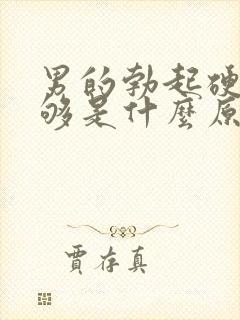 男的勃起硬
够是什麼原
賈存真